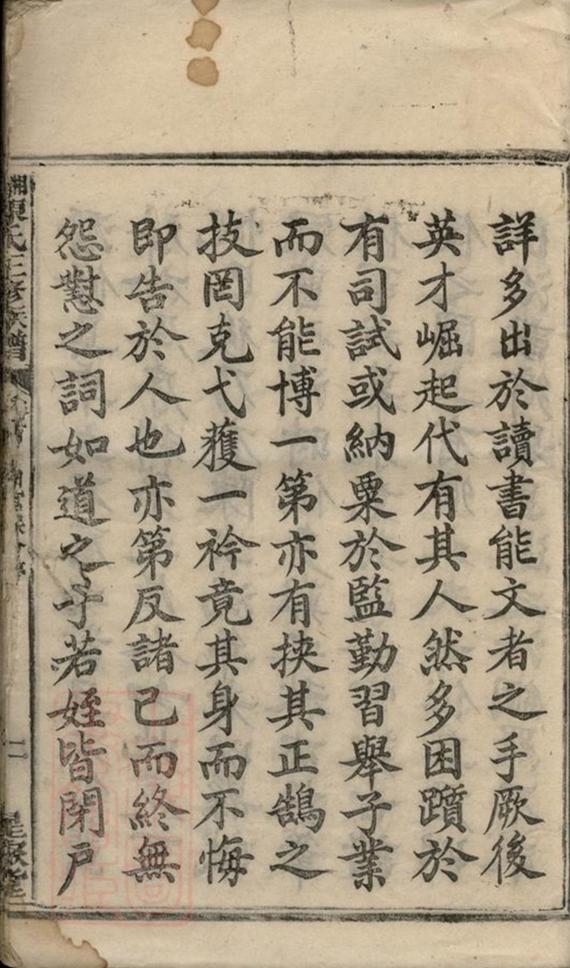 詳多出於讀書能文者之手厥後
英才崛起代有其人然多困躓於
有司試或納粟於監勤習舉子業
而不能博一第亦有挾其正鵠之
技罔克弋蒦一衿竟其身而不悔
即告於人也亦第反諸己而終無
怨懟之詞如道之子若姪皆閉戶
氏三修族譜
二